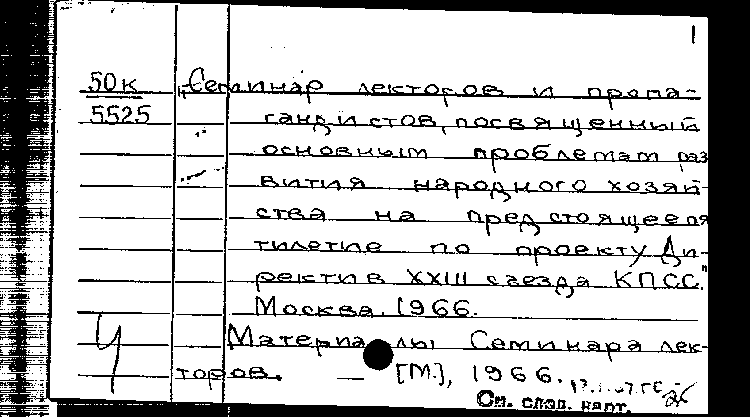 1
50к „Семинар лекторов и пропа-
5525 гандистов, посвященный
основным проблемам раз
вития народного хозяй-
ства на предстоящее пя
тилетие по проекту Ди-
ректив XXIII съезда КПСС."
Москва. 1966.
Ч Материалы Семинара лек-
торов. — [М.], 1966.
См. след. карт.